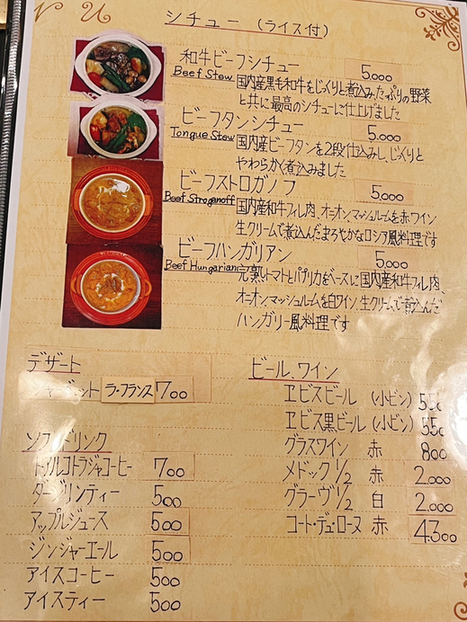 N U
シチュー (ライス付)
和牛ビーフシチュー 5,000
Beef Stew 国内産黒毛和牛をじっくりと煮込みたっぷりの野菜
と共に最高のシチューに仕上げました
ビーフタンシチュー 5,000
Tongue Stew 国内産ビーフタンを2段仕込みし、じっくりと
やわらかく煮込みました
ビーフストロガノフ 5,000
Beef Stroganoff 国内産和牛フィレ肉、オニオンマッシュルームを赤ワイン
生クリームで煮込んだまろやかなロシア風料理です
ビーフハンガリアン 5,000
Beef Hungarian 完熟トマトとパプリカをベースに国内産和牛フィレ肉、
オニオンマッシュルームを白ワイン、生クリームで煮込んだ
ハンガリー風料理です
デザート
シャーベット ラ・フランス 700
ソフトドリンク
トアルコトラジャコーヒー 700
ダージリンティー 500
アップルジュース 500
ジンジャーエール 500
アイスコーヒー 500
アイスティー 500
ビール、ワイン
ヱビスビール (小ビン) 550
ヱビス黒ビール (小ビン) 550
グラスワイン 赤 800
メドック 1/2 赤 2,000
グラーヴ 1/2 白 2,000
コート・デュ・ローヌ 赤 4300